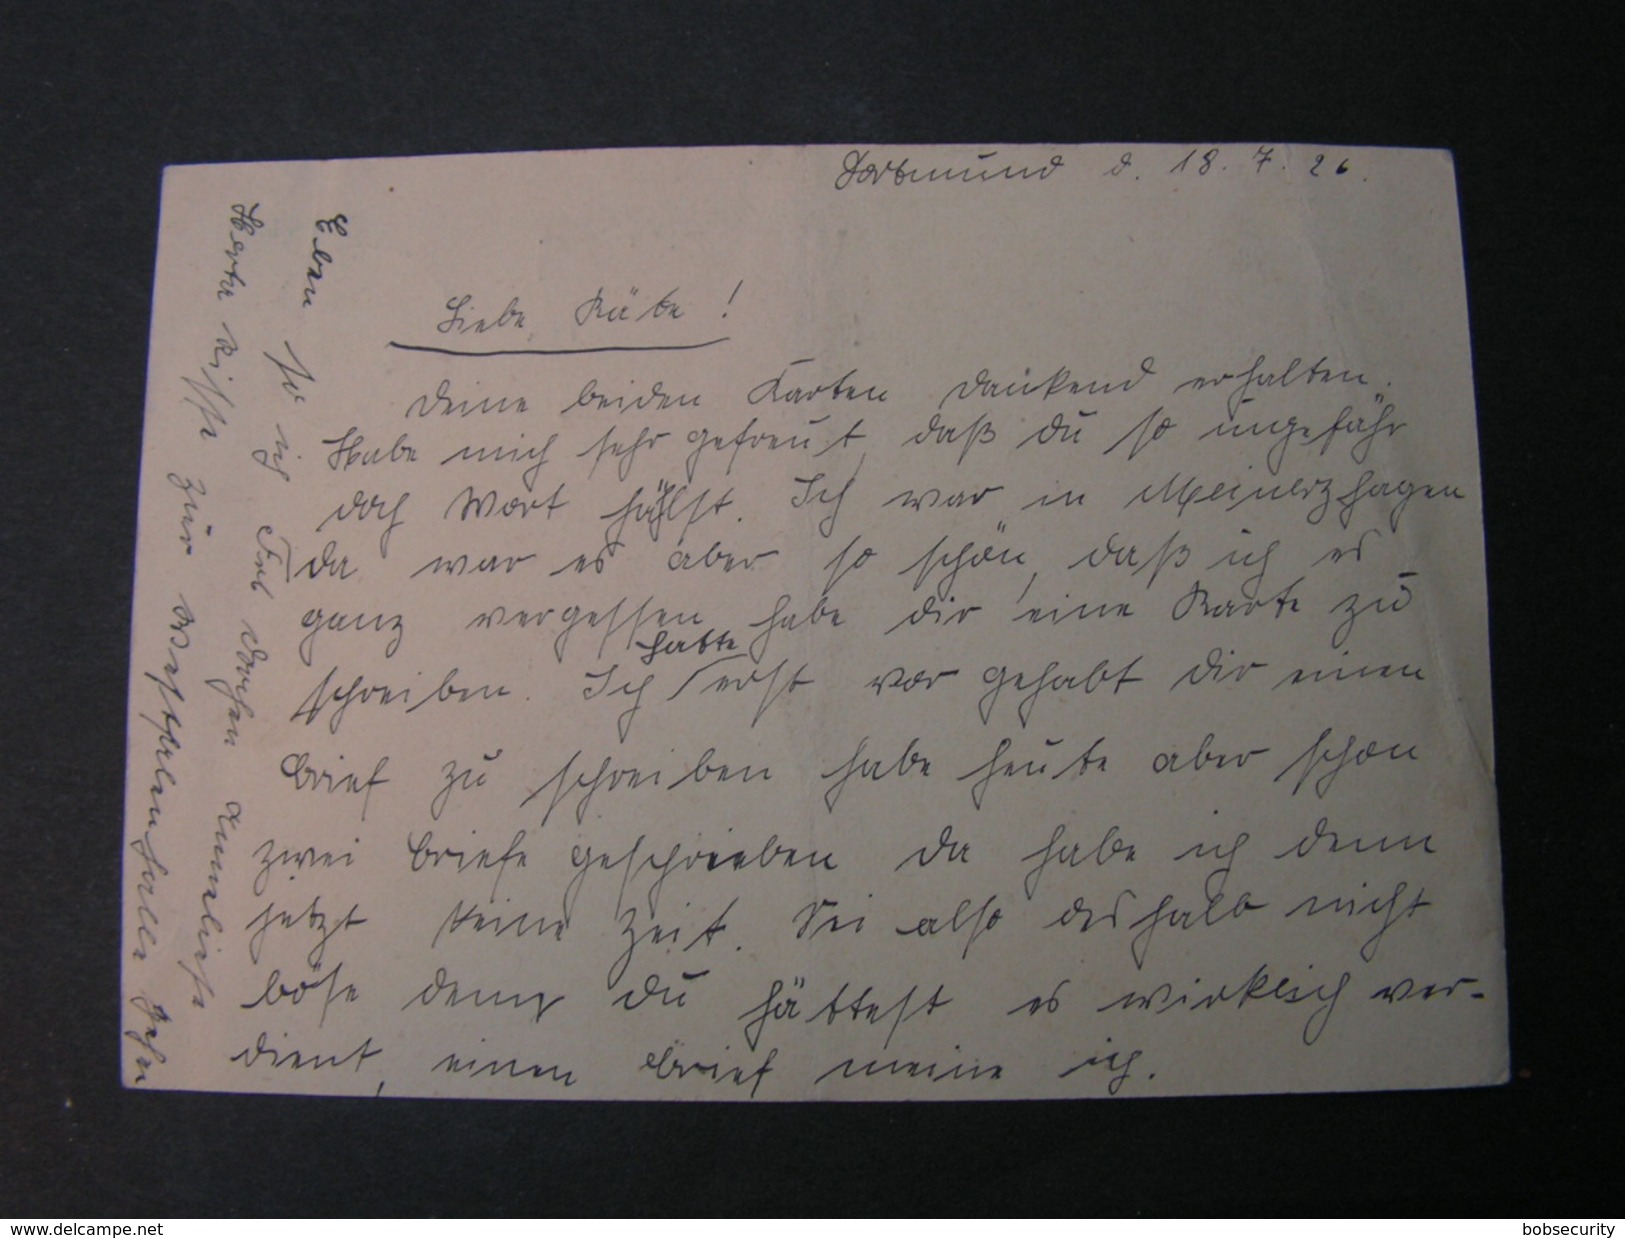 Dortmund d. 18. 7. 26.
Liebe Käte!
Deine beiden Karten dankend erhalten.
Habe mich sehr gefreut, daß du so ungefähr
doch Wort hälst. Ich war in Meinerzhagen
da war es aber so schön, daß ich es
ganz vergessen habe dir eine Karte zu
schreiben. Ich hatte erst vor gehabt dir einen
Brief zu schreiben habe heute aber schon
zwei Briefe geschrieben da habe ich denn
jetzt keine Zeit. Sei also deshalb nicht
böse denn du hättest es wirklich ver-
dient, einen Brief meine ich.
Eben
ich Frl
Herta zur Westfalenhalle gehn
delcampe.net
bobsecurity